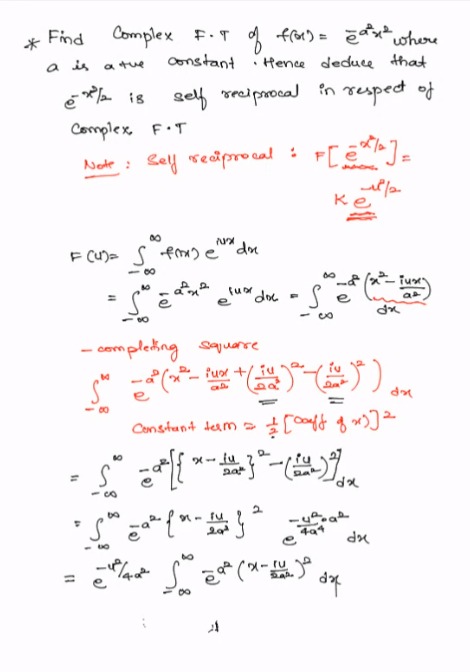 * Find Complex F.T of f(x) = e^{-a²x²} where
a is a +ve constant. Hence deduce that
e^{-x²/2} is self reciprocal in respect of
Complex F.T
Note : Self reciprocal : F[e^{-x²/2}] =
K e^{-u²/2}
F(u) = ∫_{-∞}^{∞} f(x) e^{iux} dx
= ∫_{-∞}^{∞} e^{-a²x²} e^{iux} dx = ∫_{-∞}^{∞} e^{-a²(x² - iux/a²)} dx
- completing square
∫_{-∞}^{∞} e^{-a²(x² - iux/a² + (iu/2a²)² - (iu/2a²)²)} dx
Constant term = ½ [coeff of x)]²
= ∫_{-∞}^{∞} e^{-a²[{x - iu/2a²}² - (iu/2a²)²]} dx
= ∫_{-∞}^{∞} e^{-a²{x - iu/2a²}²} e^{-u²·a²/4a⁴} dx
= e^{-u²/4a²} ∫_{-∞}^{∞} e^{-a²(x - iu/2a²)²} dx